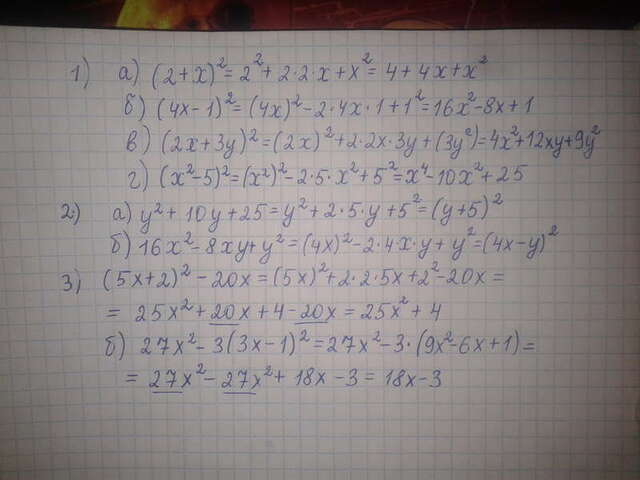 1) а) (2+x)²=2²+2·2·x+x²=4+4x+x²
б) (4x-1)²=(4x)²-2·4x·1+1²=16x²-8x+1
в) (2x+3y)²=(2x)²+2·2x·3y+(3y²)=4x²+12xy+9y²
г) (x²-5)²=(x²)²-2·5·x²+5²=x⁴-10x²+25
2) а) y²+10y+25=y²+2·5·y+5²=(y+5)²
б) 16x²-8xy+y²=(4x)²-2·4·x·y+y²=(4x-y)²
3) (5x+2)²-20x=(5x)²+2·2·5x+2²-20x=
=25x²+20x+4-20x=25x²+4
б) 27x²-3(3x-1)²=27x²-3·(9x²-6x+1)=
=27x²-27x²+18x-3=18x-3